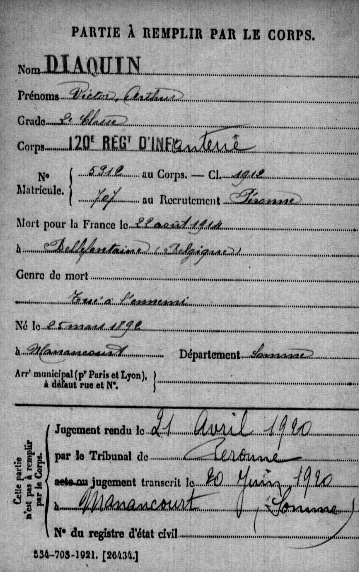 PARTIE À REMPLIR PAR LE CORPS.
Nom DIAQUIN
Prénoms Victor, Arthur
Grade 2e Classe
Corps 120E RÉGT D'INFanterie
N° Matricule. { 5912 au Corps. — Cl. 1912
707 au Recrutement Péronne
Mort pour la France le 22 août 1914
à Bellefontaine (Belgique)
Genre de mort
Tué à l'ennemi
Né le 25 mars 1892
à Manancourt Département Somme
Arrt municipal (pr Paris et Lyon), à défaut rue et N°. }
Cette partie n'est pas à remplir par le Corps.
Jugement rendu le 21 Avril 1920
par le Tribunal de Péronne
acte ou jugement transcrit le 20 Juin 1920
à Manancourt (Somme)
N° du registre d'état civil
534-708-1921. [26434.]